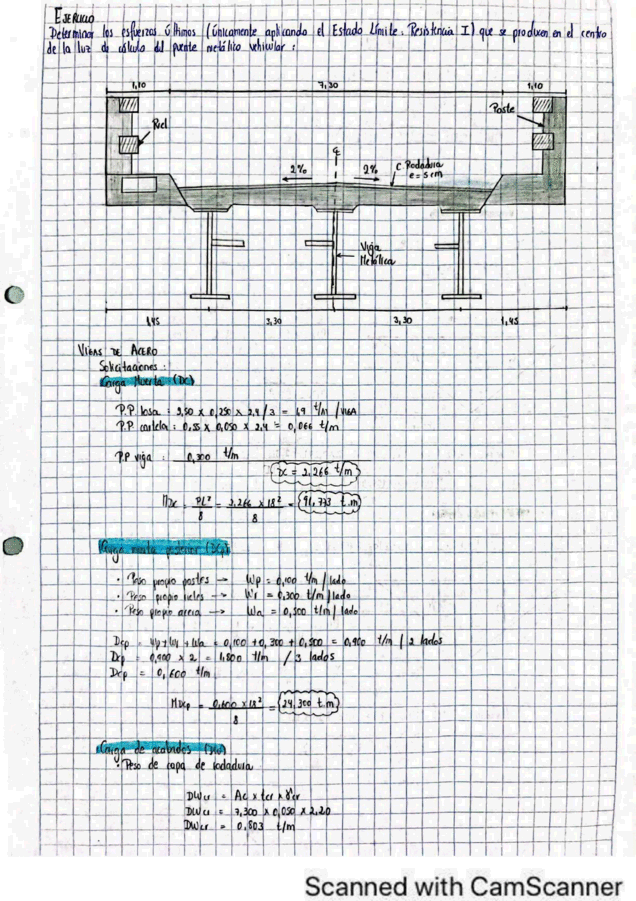 EJERCICIO
Determinar los esfuerzos últimos (únicamente aplicando el Estado Límite: Resistencia I) que se producen en el centro
de la luz de cálculo del puente metálico vehicular:
1,10 7,30 1,10
Riel
Poste
2% 2%
C. Rodadura
e=5cm
Viga
Metálica
1,45 3,30 3,30 1,45
VIGAS DE ACERO
Solicitaciones:
Carga Muerta (DC)
P.P losa: 9,50 x 0,250 x 2,4 / 3 = 1,9 t/m / VIGA
P.P. cartela: 0,55 x 0,050 x 2,4 = 0,066 t/m
P.P viga: 0,300 t/m
DC = 2,266 t/m
MDC = PL²/8 = 2,266 x 18²/8 = 91,773 t.m
Carga muerta posterior (DCp)
• Peso propio postes → Wp = 0,100 t/m / lado
• Peso propio rieles → Wr = 0,300 t/m / lado
• Peso propio acera → Wa = 0,500 t/m / lado
Dcp = Wp + Wr + Wa = 0,100 + 0,300 + 0,500 = 0,900 t/m / 2 lados
Dcp = 0,900 x 2 = 1,800 t/m / 3 lados
Dcp = 0,600 t/m
MDcp = 0,600 x 18²/8 = 24,300 t.m
Carga de acabados (DW)
• Peso de capa de rodadura
DWcr = Ac x tcr x γcr
DWcr = 7,300 x 0,050 x 2,20
DWcr = 0,803 t/m
Scanned with CamScanner